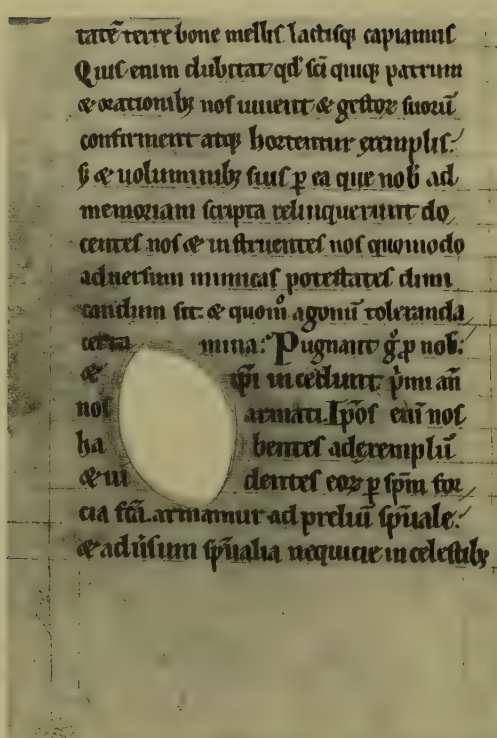 tatē terre bone mellis lactisq; capiamus
Quis enim dubitat qd̕ sc̄i quiq; patrum
& orationib; nos iuuent & gestoꝝ suoꝝ
confirment atq; hortentur exemplis.
ꝫ & uoluminib; suis ꝑ ea que nob̄ ad
memoriam scripta relinquerunt do
centes nos & instruentes nos quomodo
aduersum inimicas potestates dimi
candum sit. & quom̊ agonū toleranda
certa mina. Pugnant gͦ ꝓ nob̄.
& ip̄i incedunt p̄mi an̄
nos armati. Ip̄os eni nos
ha bentes ad exemplū
& ui dentes eoꝝ ꝑ sp̄m for
cia fc̄a. armamur ad preliū sp̄uale.
& adūsum sp̄ualia nequicie in celestib;